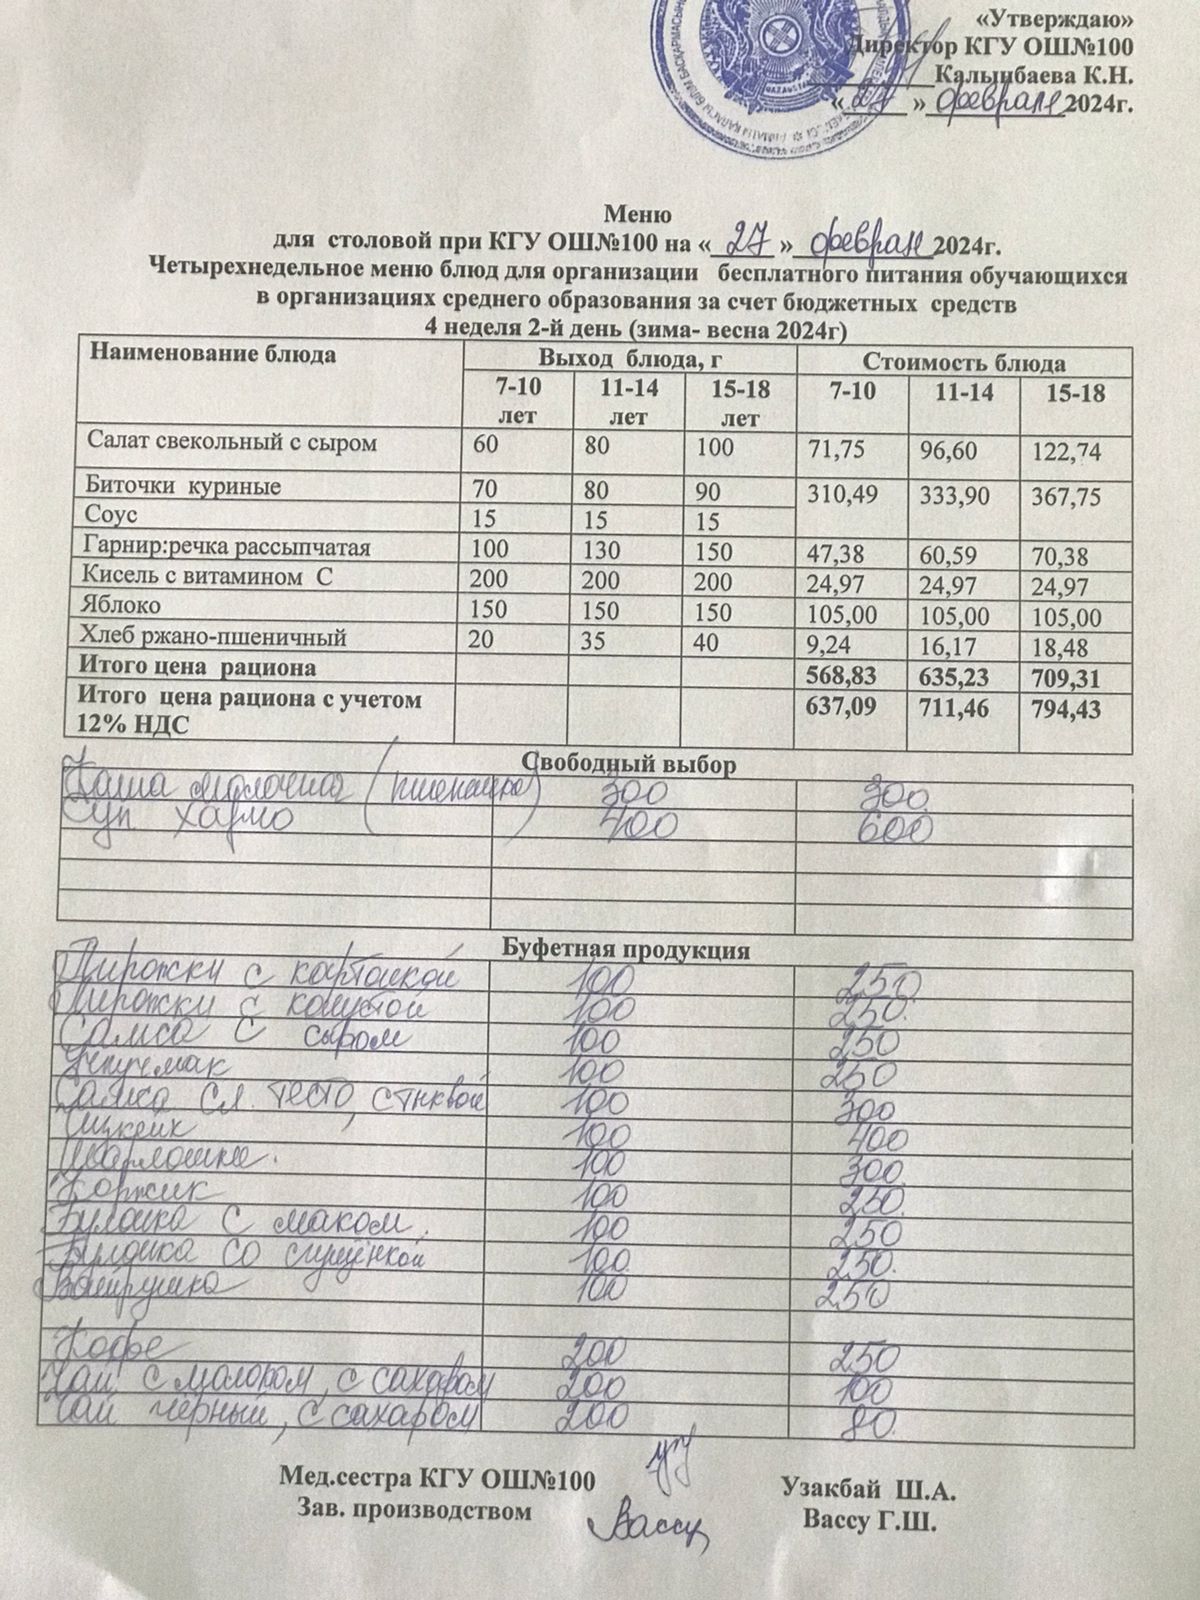 «Утверждаю»
Директор КГУ ОШ№100
Калынбаева К.Н.
« 27 » февраля 2024г.
QAZAQSTAN
Меню
для столовой при КГУ ОШ№100 на « 27 » февраля 2024г.
Четырехнедельное меню блюд для организации бесплатного питания обучающихся
в организациях среднего образования за счет бюджетных средств
4 неделя 2-й день (зима- весна 2024г)
Наименование блюда Выход блюда, г Стоимость блюда
7-10 лет 11-14 лет 15-18 лет 7-10 11-14 15-18
Салат свекольный с сыром 60 80 100 71,75 96,60 122,74
Биточки куриные 70 80 90 310,49 333,90 367,75
Соус 15 15 15
Гарнир:речка рассыпчатая 100 130 150 47,38 60,59 70,38
Кисель с витамином С 200 200 200 24,97 24,97 24,97
Яблоко 150 150 150 105,00 105,00 105,00
Хлеб ржано-пшеничный 20 35 40 9,24 16,17 18,48
Итого цена рациона 568,83 635,23 709,31
Итого цена рациона с учетом 12% НДС 637,09 711,46 794,43
Свободный выбор
Каша молочная (пшеничная) 300 300
Суп Харчо 400 600
Буфетная продукция
Пирожки с картошкой 100 250
Пирожки с капустой 100 250
Самса с сыром 100 250
Учпучмак 100 250
Самса сл. тесто, с тыквой 100 300
Чизкейк 100 400
Шарлотка 100 300
Коржик 100 250
Булочка с маком 100 250
Булочка со сгущёнкой 100 250
Ватрушка 100 250
Кофе 200 250
Чай с молоком, с сахаром 200 100
Чай чёрный, с сахаром 200 80
Мед.сестра КГУ ОШ№100 Узакбай Ш.А.
Зав. производством Вассу Вассу Г.Ш.